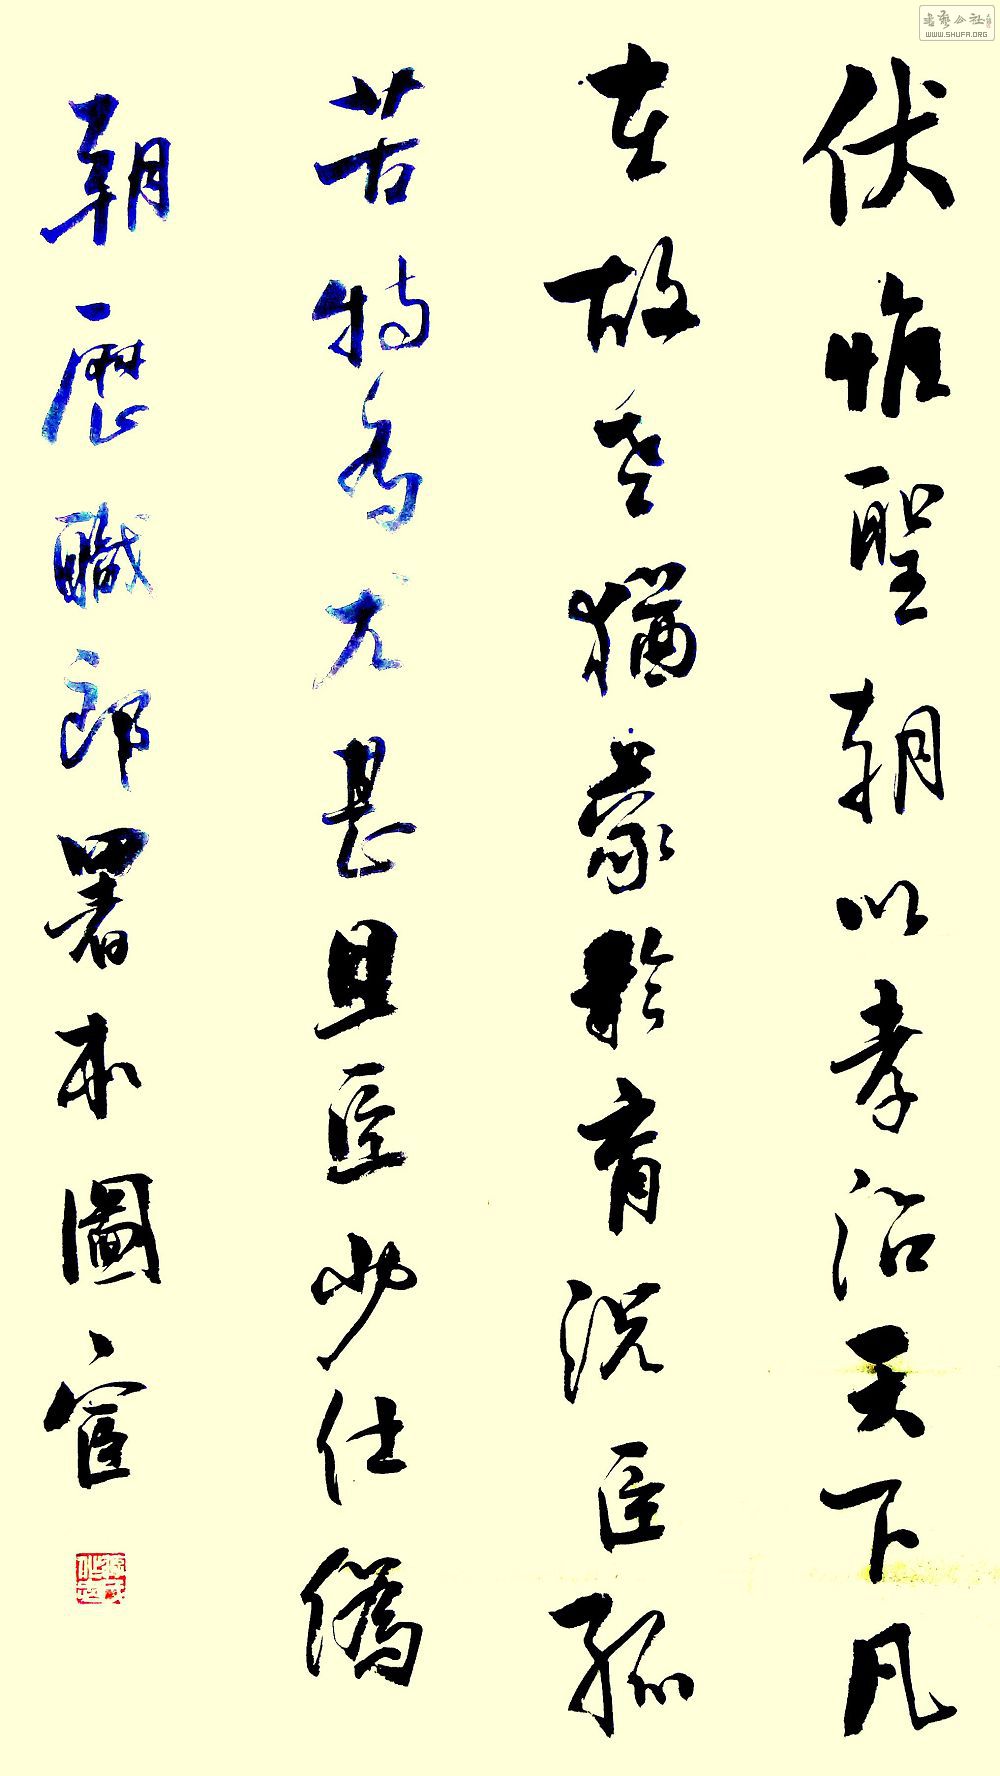 伏惟聖朝以孝治天下凡
在故老猶蒙矜育況臣孤
苦特為尤甚且臣少仕偽
朝歷職郎署本圖宦
书艺公社
WWW.SHUFA.ORG